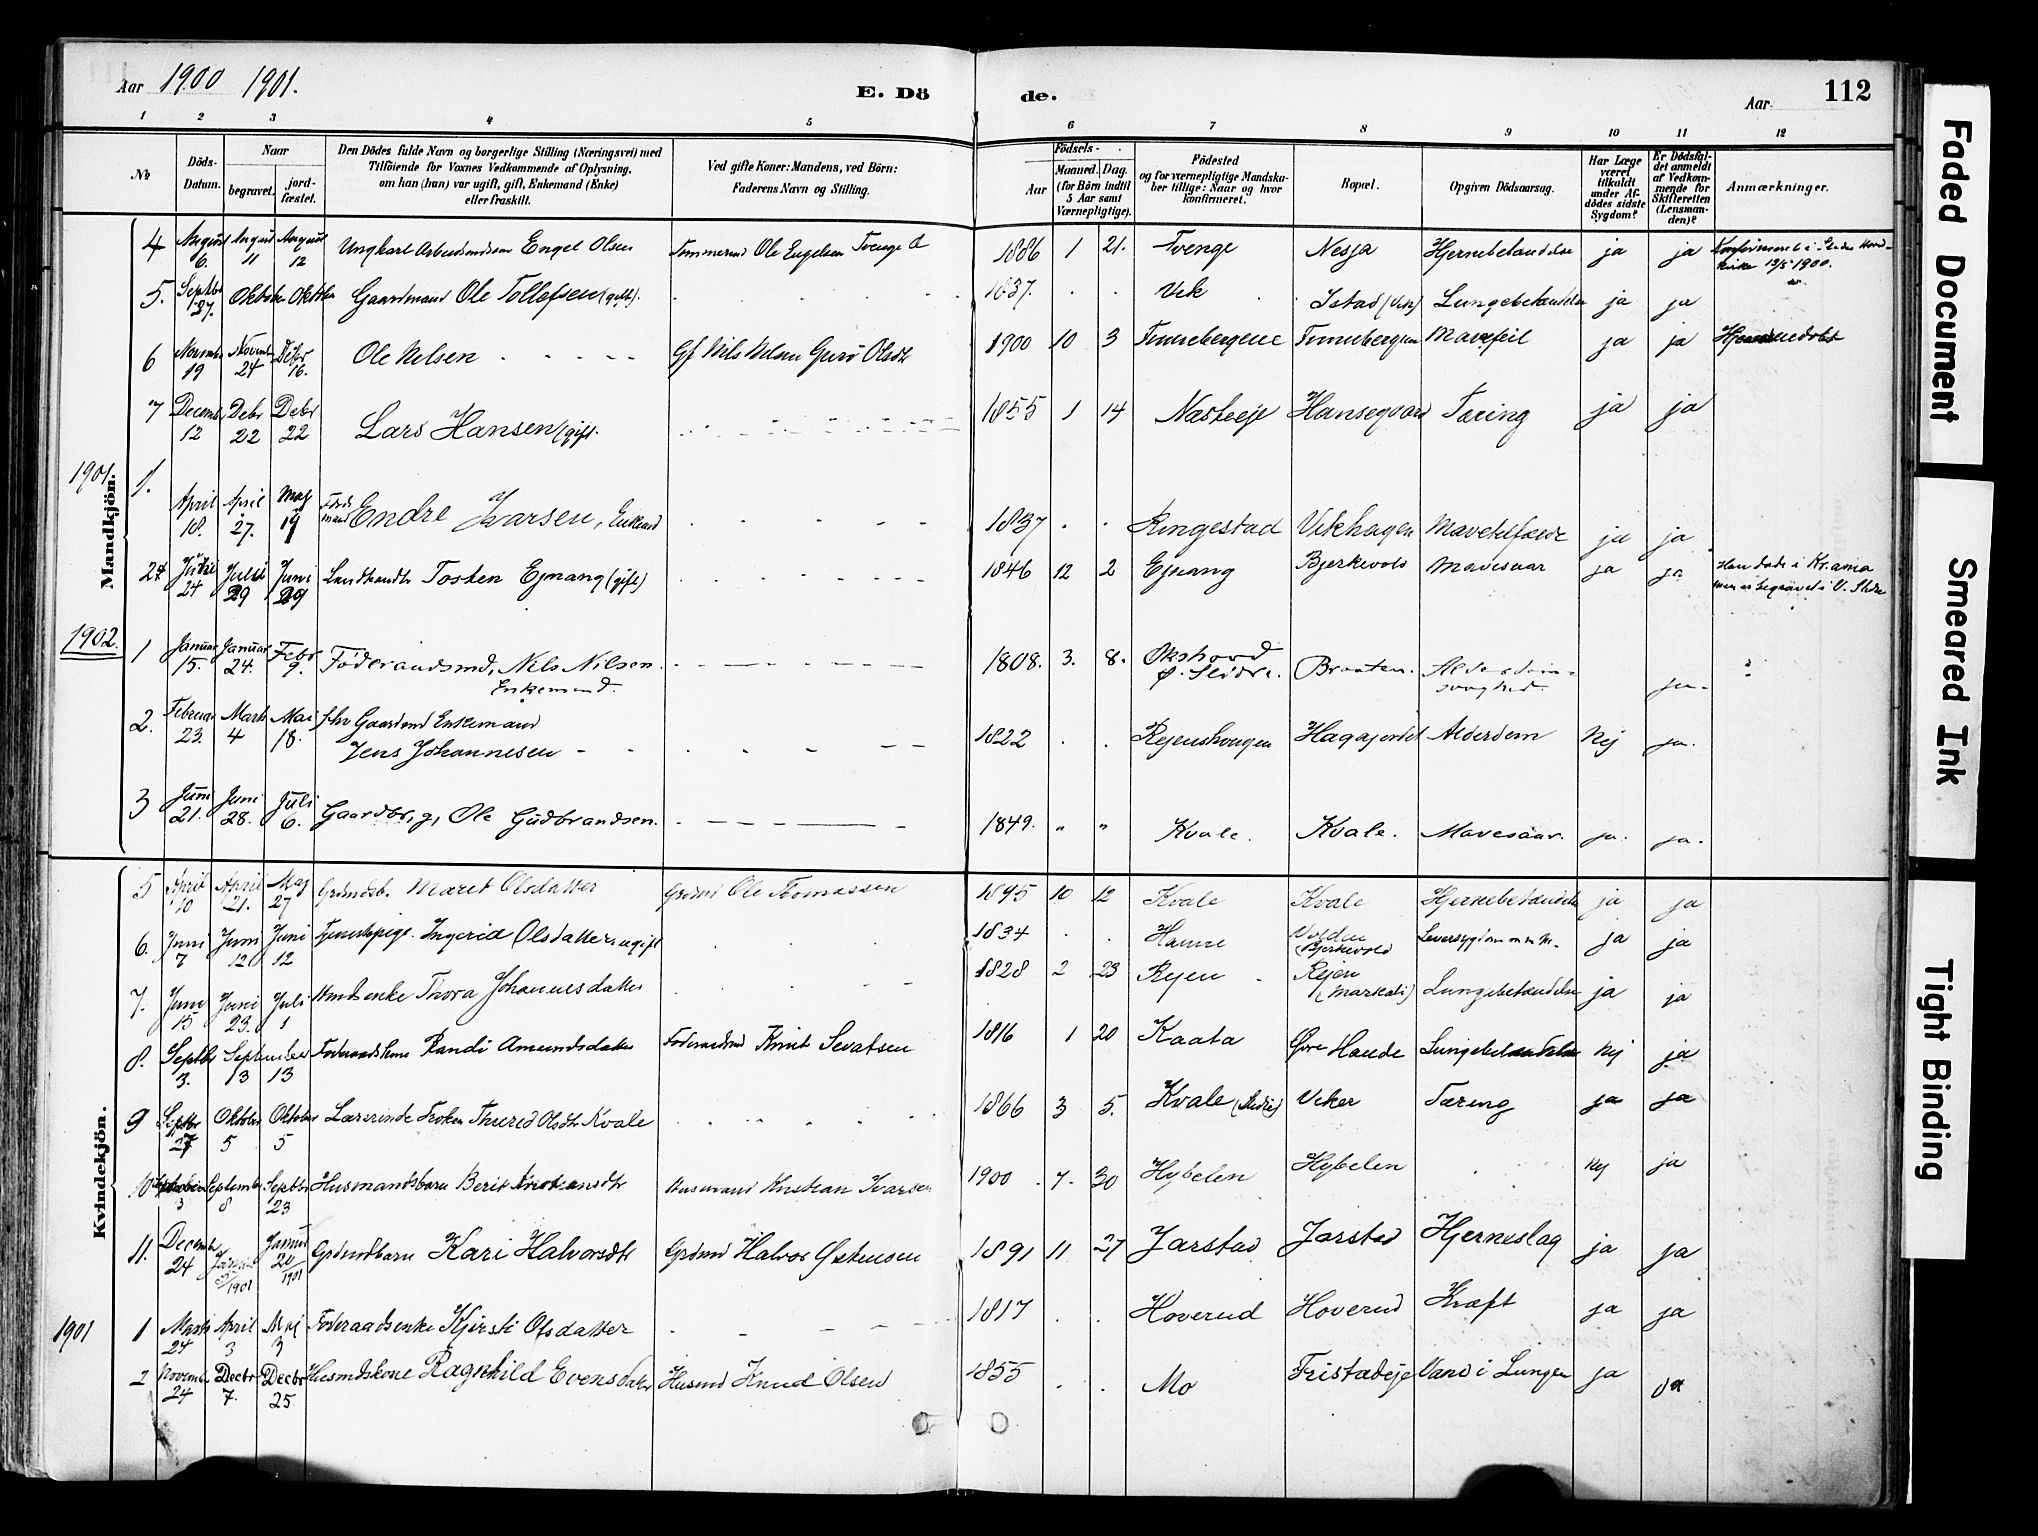 Aar 1900 1901.
E. Dö de.
Aar 112
1 2 3 4 5 6 7 8 9 10 11 12
No
Döds-Datum.
Naar begravet. jordfæstet.
Den Dödes fulde Navn og borgerlige Stilling (Næringsvei) med Tilföiende for Voxnes Vedkommende af Oplysning, om han (hun) var ugift, gift, Enkemand (Enke) eller fraskilt.
Ved gifte Koner: Mandens, ved Börn: Faderens Navn og Stilling.
Födsels-
Aar Maaned. Dag. (for Börn indtil 5 Aar samt Værnepligtige).
Födested og for værnepligtige Mandskaber tillige: Naar og hvor konfirmeret.
Bopæl.
Opgiven Dödsaarsag.
Har Læge været tilkaldt under Afdödes sidste Sygdom?
Er Dödsfaldet anmeldt af Vedkommende for Skifteretten (Lensmanden)?
Anmærkninger.
4 August 6. August 11 August 12 Ungkarl Arbeidsmdsøn Engel Olsen Tømmermd Ole Engelsen Tvenge 1886 1 21. Tvenge Nesja Hjernebetændelse ja ja 13/5 1900.
5. Septbr 27. Oktober Oktober Gaardmand Ole Tollefsen (gift) 1837. Vik Istad (Vik) Lungebetændelse ja ja
6 Novembr 19 Novembr 24 Decbr 16. Ole Nilsen Gf Nils Nilsen Guro Olsdt 1900 10 3 Tunnebergene Tunnebergene Mavefeil ja ja Hjemmedøbt
7 Decembr 12 Debr 22 Debr 22 Lars Hansen (gift. 1855 1 14 Næsteeje Hansegvard Tæring ja ja
Mandkjön.
1901. 1. April 18. April 27. Maj 19 Føderaadsmand Endre Ivarsen, Enkemd 1837 Ringestad Vikhagen Mavetilfælde ja ja
2 24 Julii 29 Juni 29 Landhandler Tosten Ejnang (gift) 1846 12 2 Ejnang Bjerkevold Mavesaar ja ja Han døde i Kr.ania men er begravet i V. Slidre
1902. 1 Januar 15. Januar 24. Febr 9. Föderaadsmd, Nils Nilsen. Enkemand. 1808. 3. 8. Okshovd Ø. Slidre. Braaten. Alderdomssvaghed. ja.
2. Februar 23. Marts 4 Mai 18. fhv Gaardmd Enkemand Jens Johannesen 1822 Rejenshougen Hagajordet Alderdom Nej ja.
3 Juni 21. Juni 28. Juli 6. Gaardbr, g, Ole Gudbrandsen. 1849. " " Kvale. Kvale. Mavesaar. ja. ja.
5 April 10 April 21. Maj 27 Grdmdsb. Marit Olsdatter Grdmd Ole Thomassen 1895 10 12 Kvale Kvale Hjernebetændelse ja ja
6. Juni 7 Juni 12 Juni 12 Tjenestepige. Ingerid Olsdatter ugift 1834 Hamre Volden (Bjerkevold Leversygdom m.m. ja ja
7. Juni 15 Juni 23. Juli 1 Husmdsenke Thora Johannesdatter 1828 2 23 Rejen Rejen (Markali) Lungebetændelse ja ja
8. Septbr 3. September 13 13 Føderaadskone Randi Amundsdatter Føderaadsmd Knut Sevatsen 1816 1 20 Kaata Øvre Hande Lungebetændelse Nej ja
Kvindekjön.
9 Septbr 27 Oktober 5 Oktober 5 Lærerinde Frøken Thurid Olsdtr Kvale 1866 3 5. Kvale (Slidre) Viker Tæring ja ja
10 3 September 8 Septbr 23 Husmandsbarn Berit Husmand Kristian Ivarsen 1900 7. 30 Hybelen Hybelen Nej ja
11. Decembr 24 Januar 5/1901 Januar 20/1901 Grdmdbarn Kari Halvorsdtr Grdmd Halvor Østensen 1891 11 27 Jarstad Jarstad Hjerneslag ja ja
1901 1 Marts 24 April 3 Maj 3 Føderaadsenke Kjersti Olsdatter 1817 Hoverud Hoverud Kræft ja ja
2 Novembr 24 Decbr 7. Decbr 25. Husmdskone Ragnhild Evensdatter Husmd Knud Olsen 1855 Mo Fristadeje Vand i Lungen ja ja
Faded Document
Smeared Ink
Tight Binding